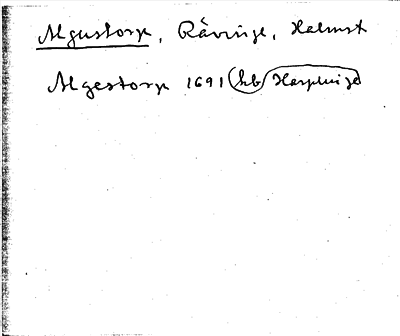 Algustorp, Rävinge, Halmst
Algestorp 1691 hb Harplinge